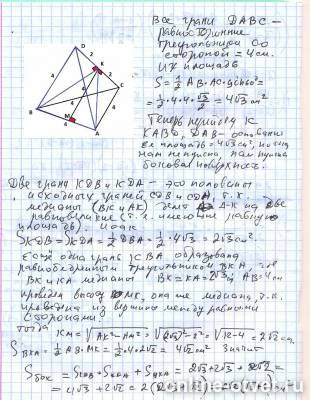 D
2
K
2
C
4
4
4
4
B
M
4
A
Все грани DABC —
равносторонние
треугольники со
стороной = 4см.
Их площадь
S = 1/2 AB·AC·
= 1/2·4·4·√3/2 = 4√3 см²
Теперь перейду к
KABD, DAB — основание
Её площадь = 4√3 см², но она
нам не нужна, нам нужна
боковая поверхность.
Две грани KDB и KDA — это половины
исходных граней CDB и CDA, т.к.
медианы (BK и AK) делят Δ-к на две
равновеликие (т.е. имеющие равную
площадь). Итак
SKDB = SKDA = 1/2 DBA = 1/2·4√3 = 2√3 см²
Ещё одна грань образована
равнобедренным треугольником BKA, где
BK и KA медианы BK = KA = 2√3, AB = 4см
проведём высоту MK, она же медиана, т.к.
проведена из вершины между равными
сторонами
тогда KM = √AK² - AM² = √(2√3)² - 2² = √12-4 = 2√2 см.
SBKA = 1/2 AB·MK = 1/2·4·2√2 = 4√2 см² Значит
Sбок = SKDB + SKDA + SBKA = 2√3 + 2√3 +
= 4√3 +
online-otvet.ru